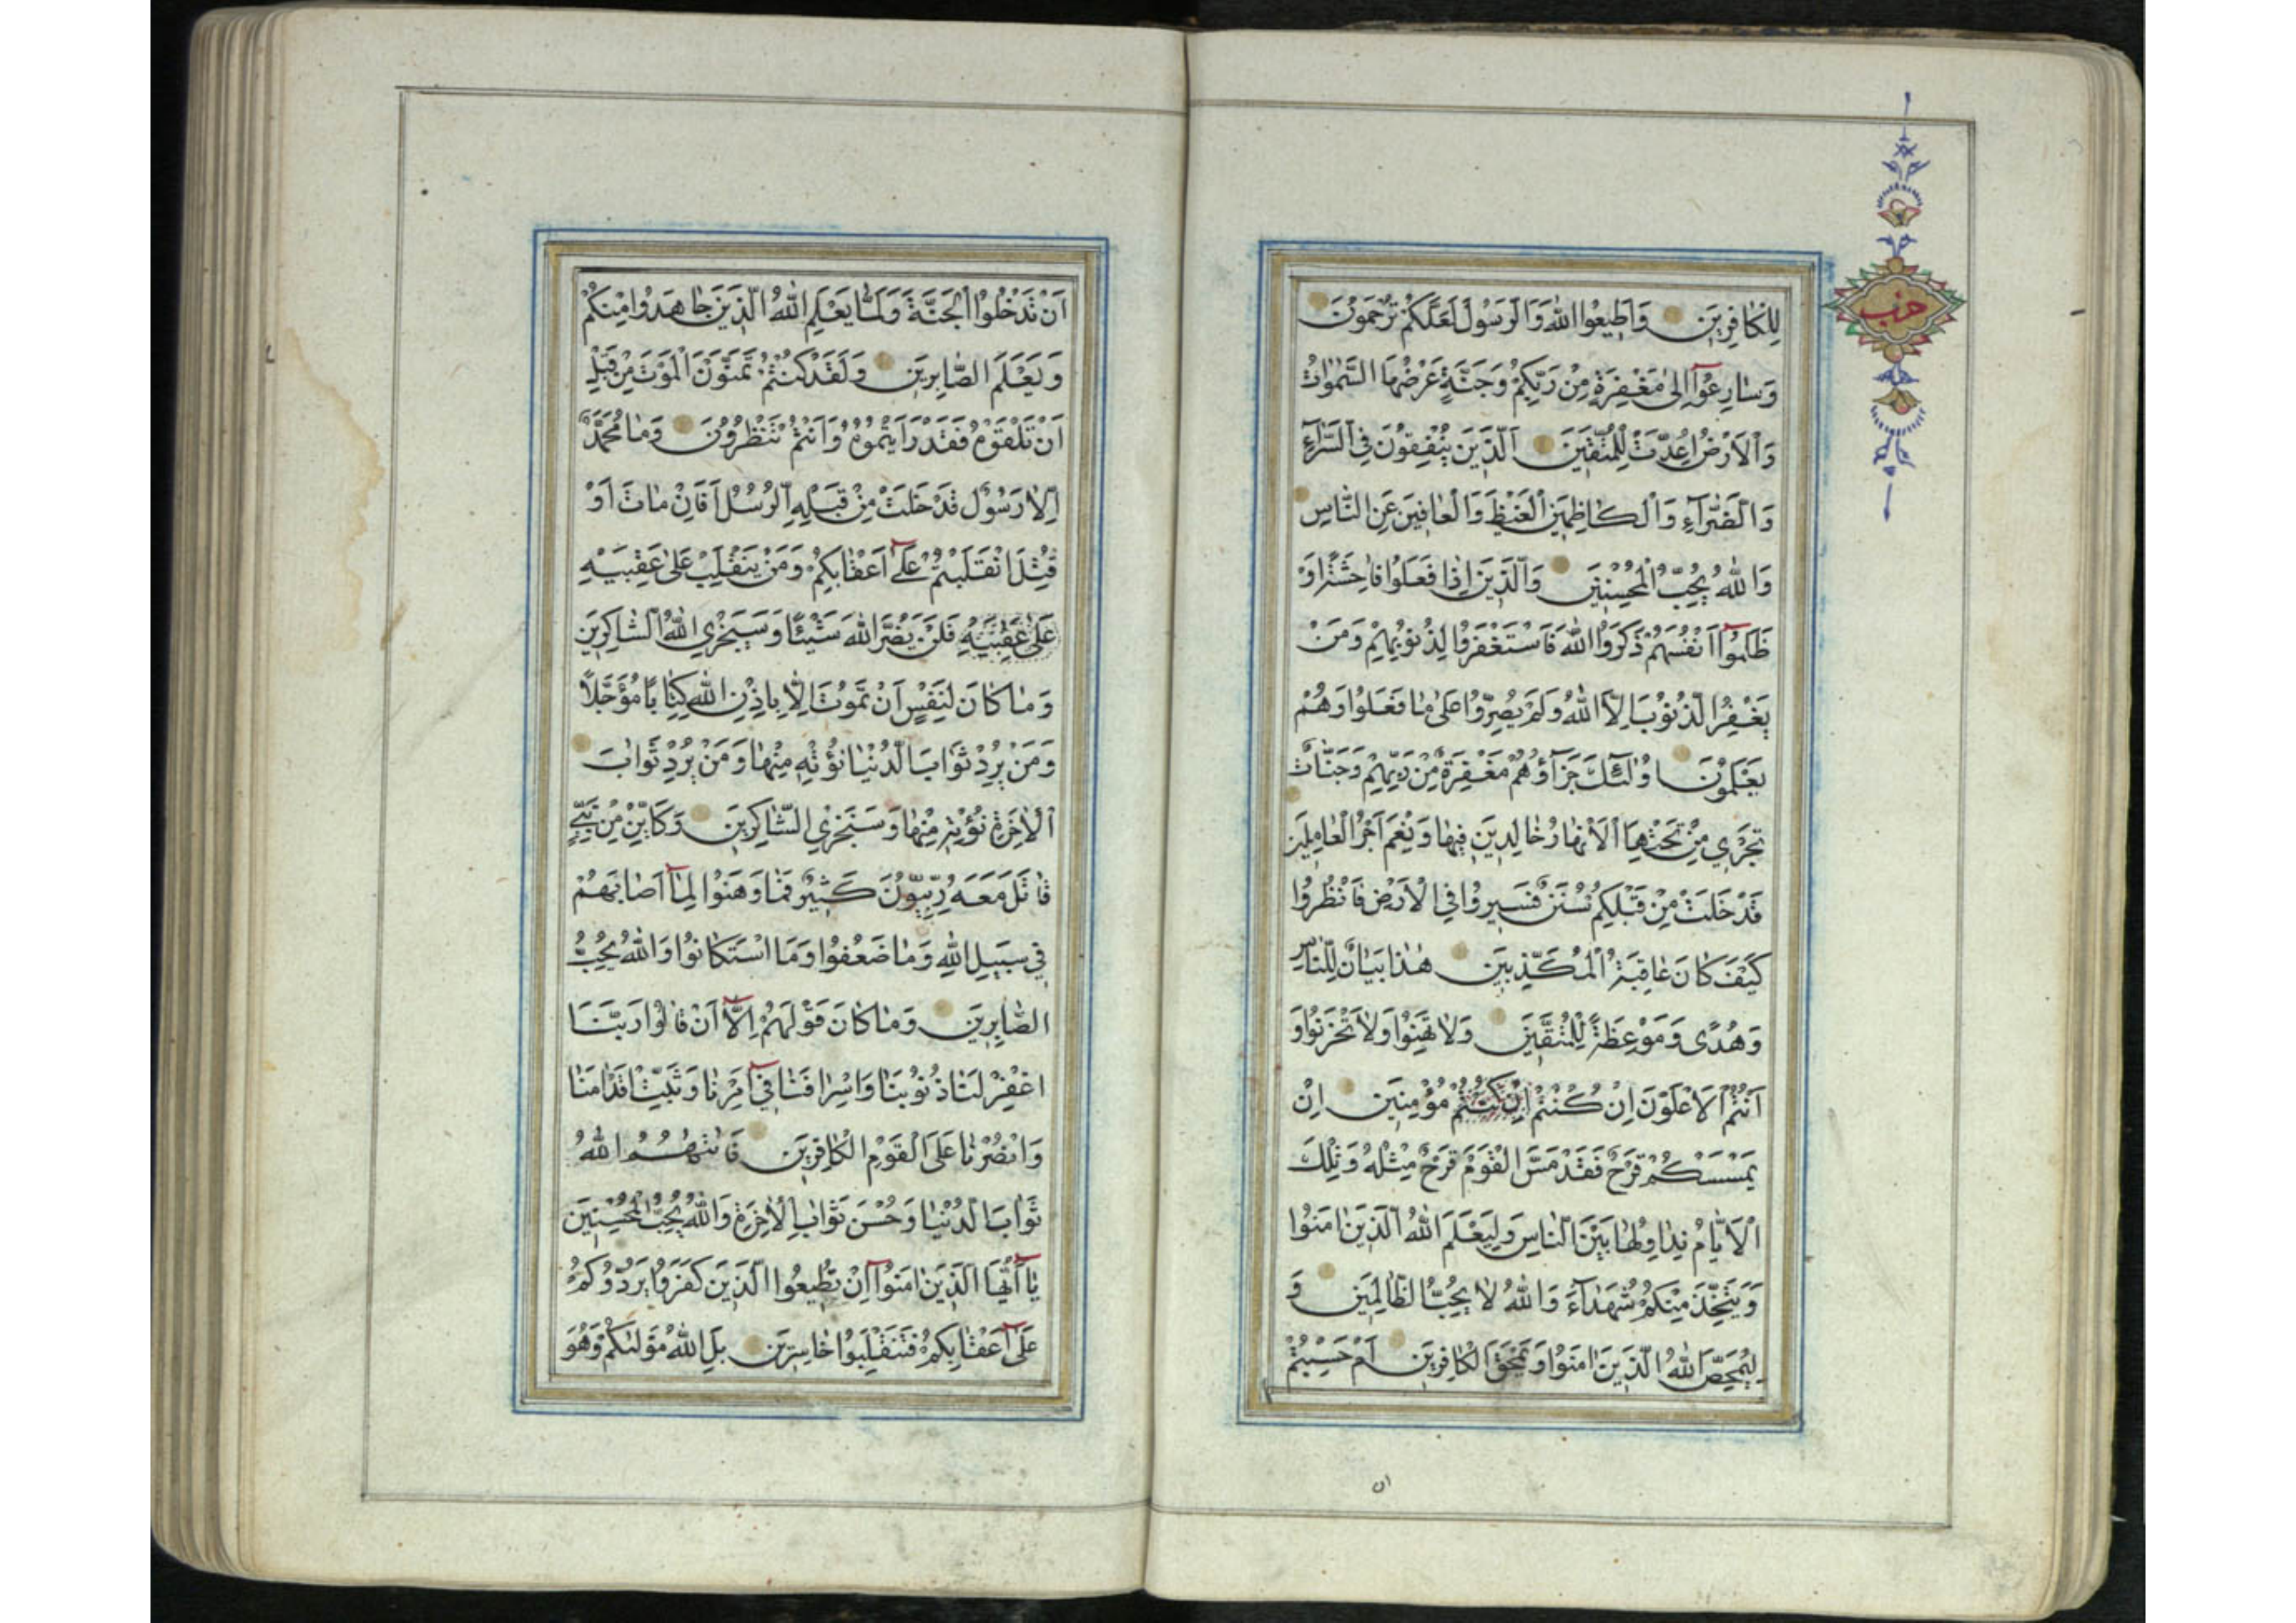 حزب
لِلْكَافِرِينَ وَاَطِيعُوا اللّٰهَ وَالرَّسُولَ لَعَلَّكُمْ تُرْحَمُونَ
وَسَارِعُوٓا اِلٰى مَغْفِرَةٍ مِنْ رَبِّكُمْ وَجَنَّةٍ عَرْضُهَا السَّمٰوَاتُ
وَالْاَرْضُ اُعِدَّتْ لِلْمُتَّقِينَ اَلَّذِينَ يُنْفِقُونَ فِي السَّرَّآءِ
وَالضَّرَّآءِ وَالْكَاظِمِينَ الْغَيْظَ وَالْعَافِينَ عَنِ النَّاسِ
وَاللّٰهُ يُحِبُّ الْمُحْسِنِينَ وَالَّذِينَ اِذَا فَعَلُوا فَاحِشَةً اَوْ
ظَلَمُوٓا اَنْفُسَهُمْ ذَكَرُوا اللّٰهَ فَاسْتَغْفَرُوا لِذُنُوبِهِمْ وَمَنْ
يَغْفِرُ الذُّنُوبَ اِلَّا اللّٰهُ وَلَمْ يُصِرُّوا عَلٰى مَا فَعَلُوا وَهُمْ
يَعْلَمُونَ اُولٰٓئِكَ جَزَآؤُهُمْ مَغْفِرَةٌ مِنْ رَبِّهِمْ وَجَنَّاتٌ
تَجْرِي مِنْ تَحْتِهَا الْاَنْهَارُ خَالِدِينَ فِيهَا وَنِعْمَ اَجْرُ الْعَامِلِينَ
قَدْ خَلَتْ مِنْ قَبْلِكُمْ سُنَنٌ فَسِيرُوا فِي الْاَرْضِ فَانْظُرُوا
كَيْفَ كَانَ عَاقِبَةُ الْمُكَذِّبِينَ هٰذَا بَيَانٌ لِلنَّاسِ
وَهُدًى وَمَوْعِظَةٌ لِلْمُتَّقِينَ وَلَا تَهِنُوا وَلَا تَحْزَنُوا وَ
اَنْتُمُ الْاَعْلَوْنَ اِنْ كُنْتُمْ اِنْ كُنْتُمْ مُؤْمِنِينَ اِنْ
يَمْسَسْكُمْ قَرْحٌ فَقَدْ مَسَّ الْقَوْمَ قَرْحٌ مِثْلُهُ وَتِلْكَ
الْاَيَّامُ نُدَاوِلُهَا بَيْنَ النَّاسِ وَلِيَعْلَمَ اللّٰهُ الَّذِينَ اٰمَنُوا
وَيَتَّخِذَ مِنْكُمْ شُهَدَآءَ وَاللّٰهُ لَا يُحِبُّ الظَّالِمِينَ وَ
لِيُمَحِّصَ اللّٰهُ الَّذِينَ اٰمَنُوا وَيَمْحَقَ الْكَافِرِينَ اَمْ حَسِبْتُمْ
ان
اَنْ تَدْخُلُوا الْجَنَّةَ وَلَمَّا يَعْلَمِ اللّٰهُ الَّذِينَ جَاهَدُوا مِنْكُمْ
وَيَعْلَمَ الصَّابِرِينَ وَلَقَدْ كُنْتُمْ تَمَنَّوْنَ الْمَوْتَ مِنْ قَبْلِ
اَنْ تَلْقَوْهُ فَقَدْ رَاَيْتُمُوهُ وَاَنْتُمْ تَنْظُرُونَ وَمَا مُحَمَّدٌ
اِلَّا رَسُولٌ قَدْ خَلَتْ مِنْ قَبْلِهِ الرُّسُلُ اَفَاِنْ مَاتَ اَوْ
قُتِلَ انْقَلَبْتُمْ عَلٰٓى اَعْقَابِكُمْ وَمَنْ يَنْقَلِبْ عَلٰى عَقِبَيْهِ
عَلٰى عَقِبَيْهِ فَلَنْ يَضُرَّ اللّٰهَ شَيْئًا وَسَيَجْزِي اللّٰهُ الشَّاكِرِينَ
وَمَا كَانَ لِنَفْسٍ اَنْ تَمُوتَ اِلَّا بِاِذْنِ اللّٰهِ كِتَابًا مُؤَجَّلًا
وَمَنْ يُرِدْ ثَوَابَ الدُّنْيَا نُؤْتِهِ مِنْهَا وَمَنْ يُرِدْ ثَوَابَ
الْاٰخِرَةِ نُؤْتِهِ مِنْهَا وَسَنَجْزِي الشَّاكِرِينَ وَكَاَيِّنْ مِنْ نَبِيٍّ
قَاتَلَ مَعَهُ رِبِّيُّونَ كَثِيرٌ فَمَا وَهَنُوا لِمَآ اَصَابَهُمْ
فِي سَبِيلِ اللّٰهِ وَمَا ضَعُفُوا وَمَا اسْتَكَانُوا وَاللّٰهُ يُحِبُّ
الصَّابِرِينَ وَمَا كَانَ قَوْلَهُمْ اِلَّآ اَنْ قَالُوا رَبَّنَا
اغْفِرْ لَنَا ذُنُوبَنَا وَاِسْرَافَنَا فِيٓ اَمْرِنَا وَثَبِّتْ اَقْدَامَنَا
وَانْصُرْنَا عَلَى الْقَوْمِ الْكَافِرِينَ فَاٰتٰيهُمُ اللّٰهُ
ثَوَابَ الدُّنْيَا وَحُسْنَ ثَوَابِ الْاٰخِرَةِ وَاللّٰهُ يُحِبُّ الْمُحْسِنِينَ
يَآ اَيُّهَا الَّذِينَ اٰمَنُوٓا اِنْ تُطِيعُوا الَّذِينَ كَفَرُوا يَرُدُّوكُمْ
عَلٰٓى اَعْقَابِكُمْ فَتَنْقَلِبُوا خَاسِرِينَ بَلِ اللّٰهُ مَوْلٰيكُمْ وَهُوَ